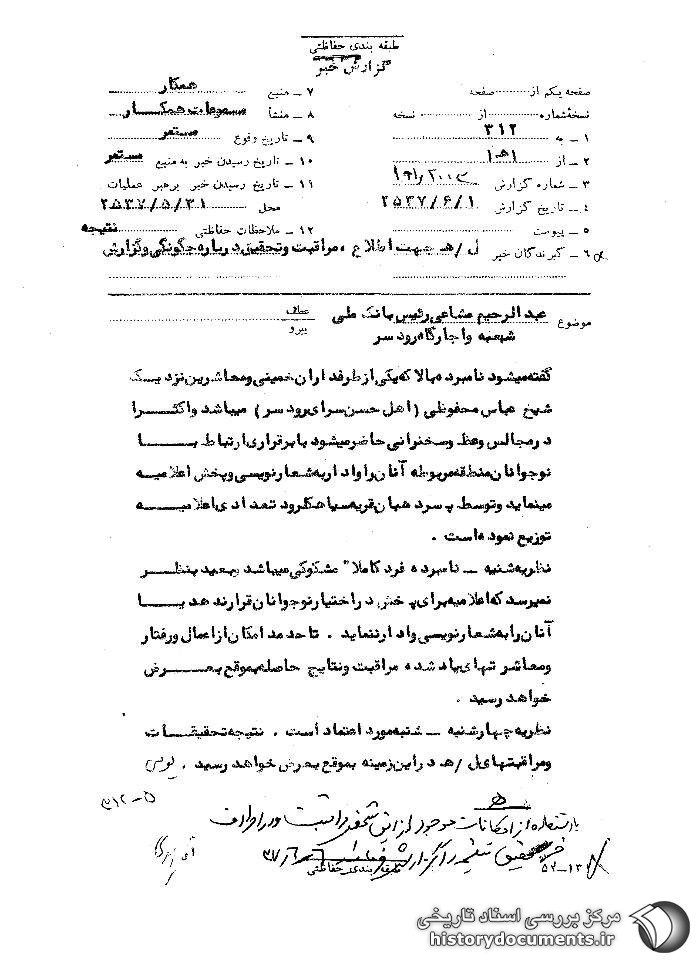 طبقه بندی حفاظتی
گزارش خبر
صفحه یکم از صفحه
نسخه شماره از نسخه
۱ – به ۳۱۲
۲ – از ۱ﻫ۱
۳ – شماره گزارش
۴ – تاریخ گزارش ۲۵۳۷/۶/۱
۵ – پیوست
۶ – گیرندگان خبر ل/ﻫ جهت اطلاع ، مراقبت و تحقیق درباره چگونگی و گزارش
۷ – منبع همکار
۸ – منشأ مسموعات همکار
۹ – تاریخ وقوع مستمر
۱۰ – تاریخ رسیدن خبر به منبع مستمر
۱۱ – تاریخ رسیدن خبر برهبر عملیات
محل ۲۵۳۷/۵/۳۱
۱۲ – ملاحظات حفاظتی نتیجه
موضوع عبدالرحیم مشاعی رئیس بانک ملی
شعبه واجارگاه رودسر
عطف
پیرو
گفته میشود نامبرده بالا که یکی از طرفداران خمینی و معاشرین نزدیک
شیخ عباس محفوظی (اهل حسن سرای رودسر) میباشد و اکثرا
در مجالس وعظ و سخنرانی حاضر میشود با برقراری ارتباط با
نوجوانان منطقه مربوطه آنان را وادار به شعارنویسی و پخش اعلامیه
مینماید و توسط پسر دهبان قریه سیاهکلرود تعدادی اعلامیه
توزیع نموده است .
نظریه شنبه – نامبرده فرد کاملا" مشکوکی میباشد و بعید بنظر
نمیرسد که اعلامیه برای پخش در اختیار نوجوانان قرار ندهد یا
آنان را به شعارنویسی وادار ننماید . تا حد امکان از اعمال و رفتار
و معاشرتهای یاد شده مراقبت و نتایج حاصله بموقع بعرض
خواهد رسید .
نظریه چهارشنبه – شنبه مورد اعتماد است . نتیجه تحقیقات
و مراقبتهای ل/ﻫ در این زمینه بموقع بعرض خواهد رسید .
ﻫ
با استفاده از امکانات موجود از این شخص مراقبت و در اطراف
تحقیق نتیجه را گزارش
طبقه بندی حفاظتی
مرکز بررسی اسناد تاریخی
historydocuments.ir